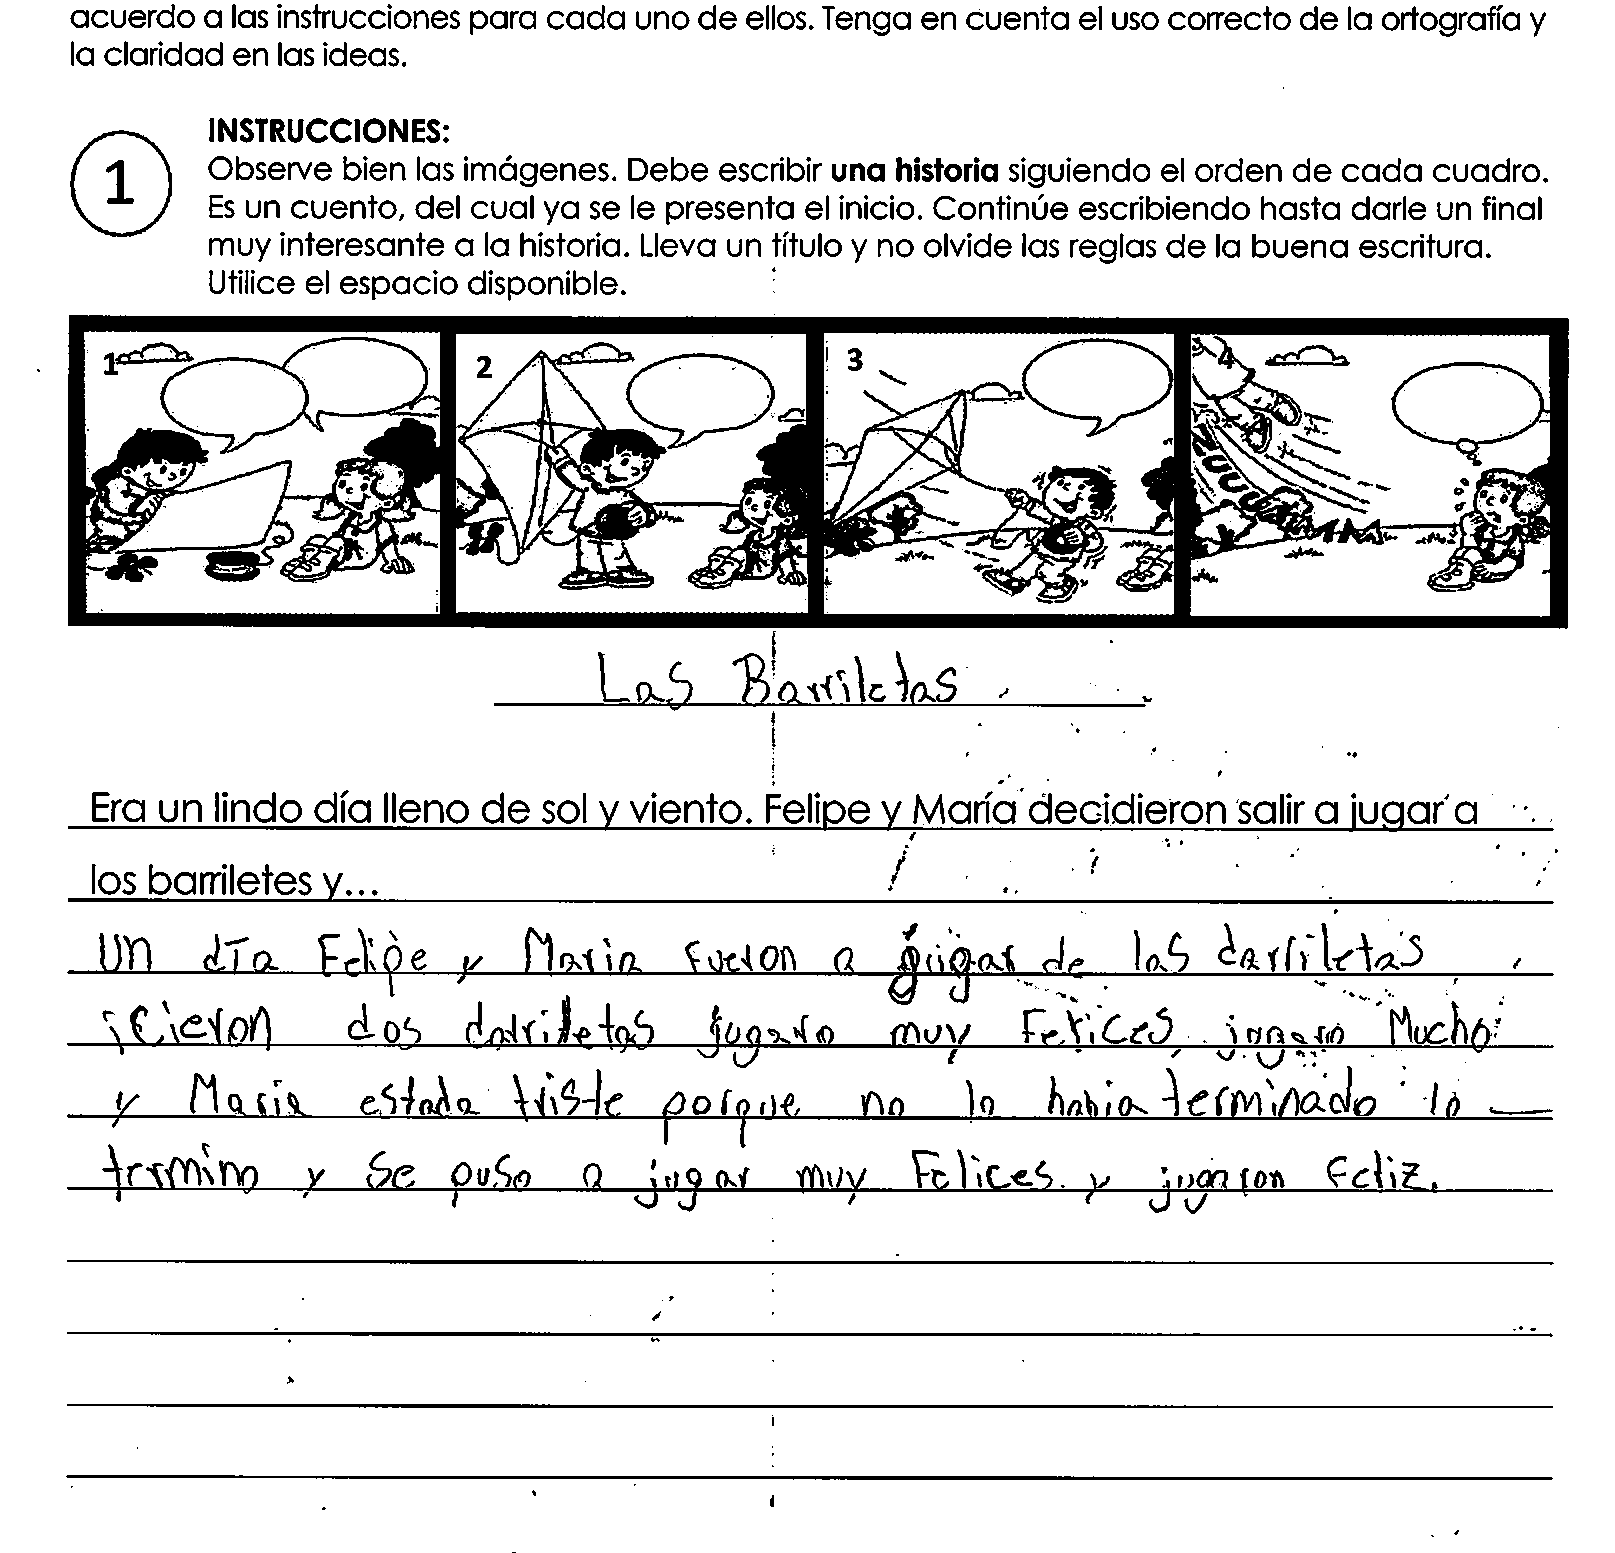 acuerdo a las instrucciones para cada uno de ellos. Tenga en cuenta el uso correcto de la ortografía y
la claridad en las ideas.
INSTRUCCIONES:
1
Observe bien las imágenes. Debe escribir una historia siguiendo el orden de cada cuadro.
Es un cuento, del cual ya se le presenta el inicio. Continúe escribiendo hasta darle un final
muy interesante a la historia. Lleva un título y no olvide las reglas de la buena escritura.
Utilice el espacio disponible.
1 2 3 4
Las Barriletas
Era un lindo día lleno de sol y viento. Felipe y María decidieron salir a jugar a
los barriletes y...
UN día Felipe y Maria fueron a gugar de las darriletas
icieron dos darriletas jugaro muy Felices jugaro Mucho
y Maria estada triste porque no lo habia terminado lo
termino y se puso a jugar muy Felices y jugaron Feliz.